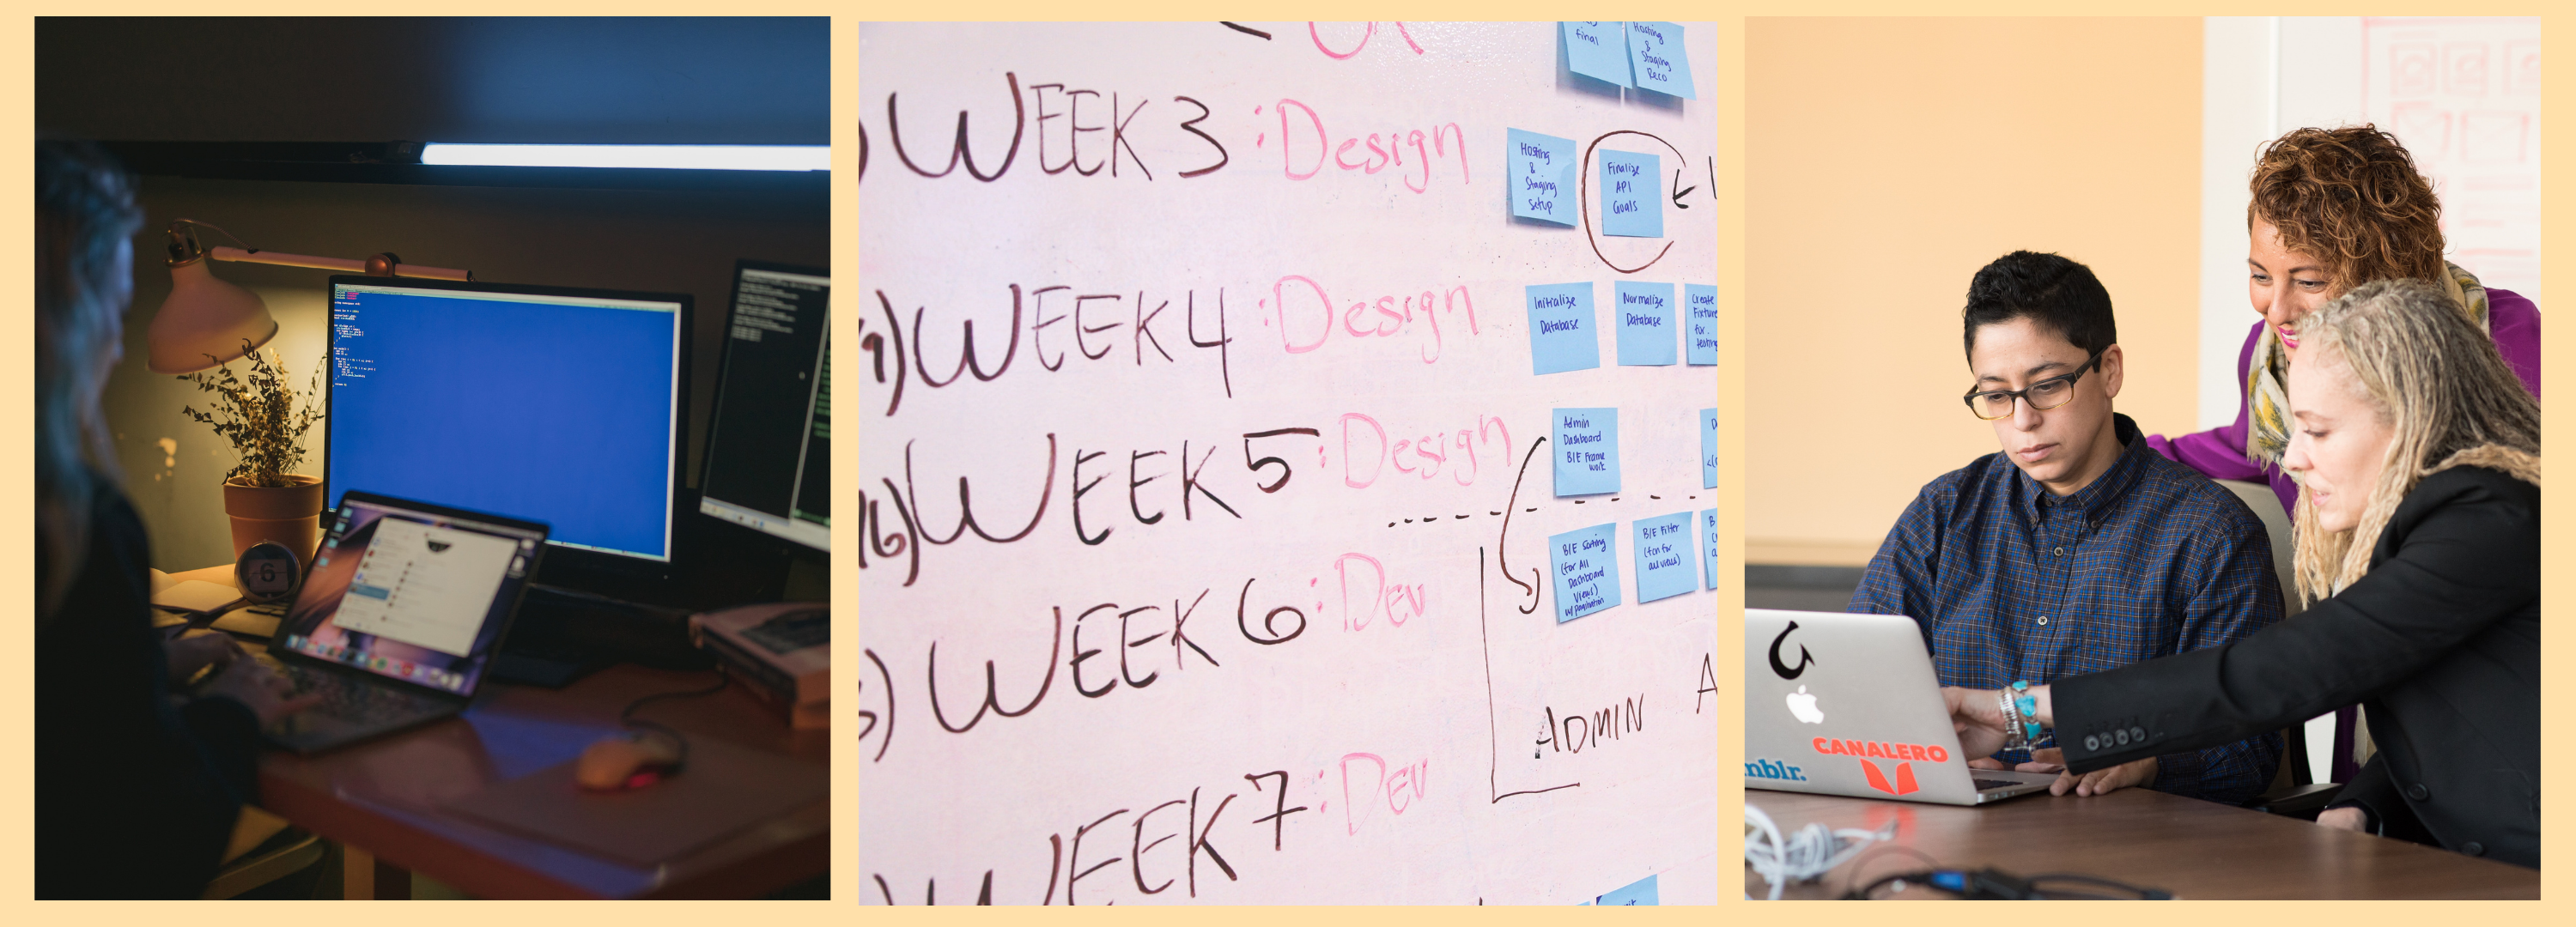 6
WEEK 3 : Design
final
Hosting
&
Staging
Reco
Hosting
&
Staging
Setup
Finalize
API
Goals
WEEK 4 : Design
Initialize
Database
Normalize
Database
Create
Fixture
for
testing
WEEK 5 : Design
Admin
Dashboard
B/E Frame
work
WEEK 6 : Dev
B/E Sorting
(for All
Dashboard
Views)
w/ pagination
B/E Filter
(fcn for
all views)
ADMIN
WEEK 7 : Dev
CANALERO
mblr.